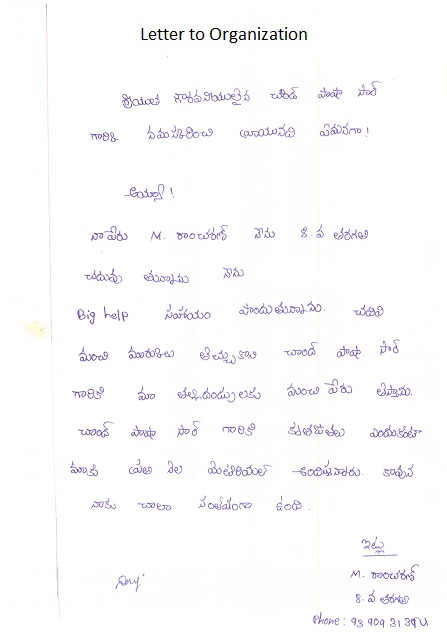 Letter to Organization
శ్రీయుత గౌరవనీయులైన చాంద్ పాషా సార్
గారికి నమస్కరించి వ్రాయునది ఏమనగా!
అయ్యా!
నా పేరు M. రాంచరణ్ నేను 8.వ తరగతి
చదువు తున్నాను నేను
Big help సహాయం పొందుతున్నాను. చదివి
మంచి మార్కులు తెచ్చుకొని చాంద్ పాషా సార్
గారికి మా తల్లిదండ్రులకు మంచి పేరు తెస్తాను.
చాంద్ పాషా సార్ గారికి కృతజ్ఞతలు ఎందుకంటే
మాకు ప్రతి నెల మెటీరియల్ అందిస్తున్నారు. కావున
నాకు చాలా సంతోషంగా ఉంది.
ఇట్లు
M. రాంచరణ్
8.వ తరగతి
Phone: 93909 3139